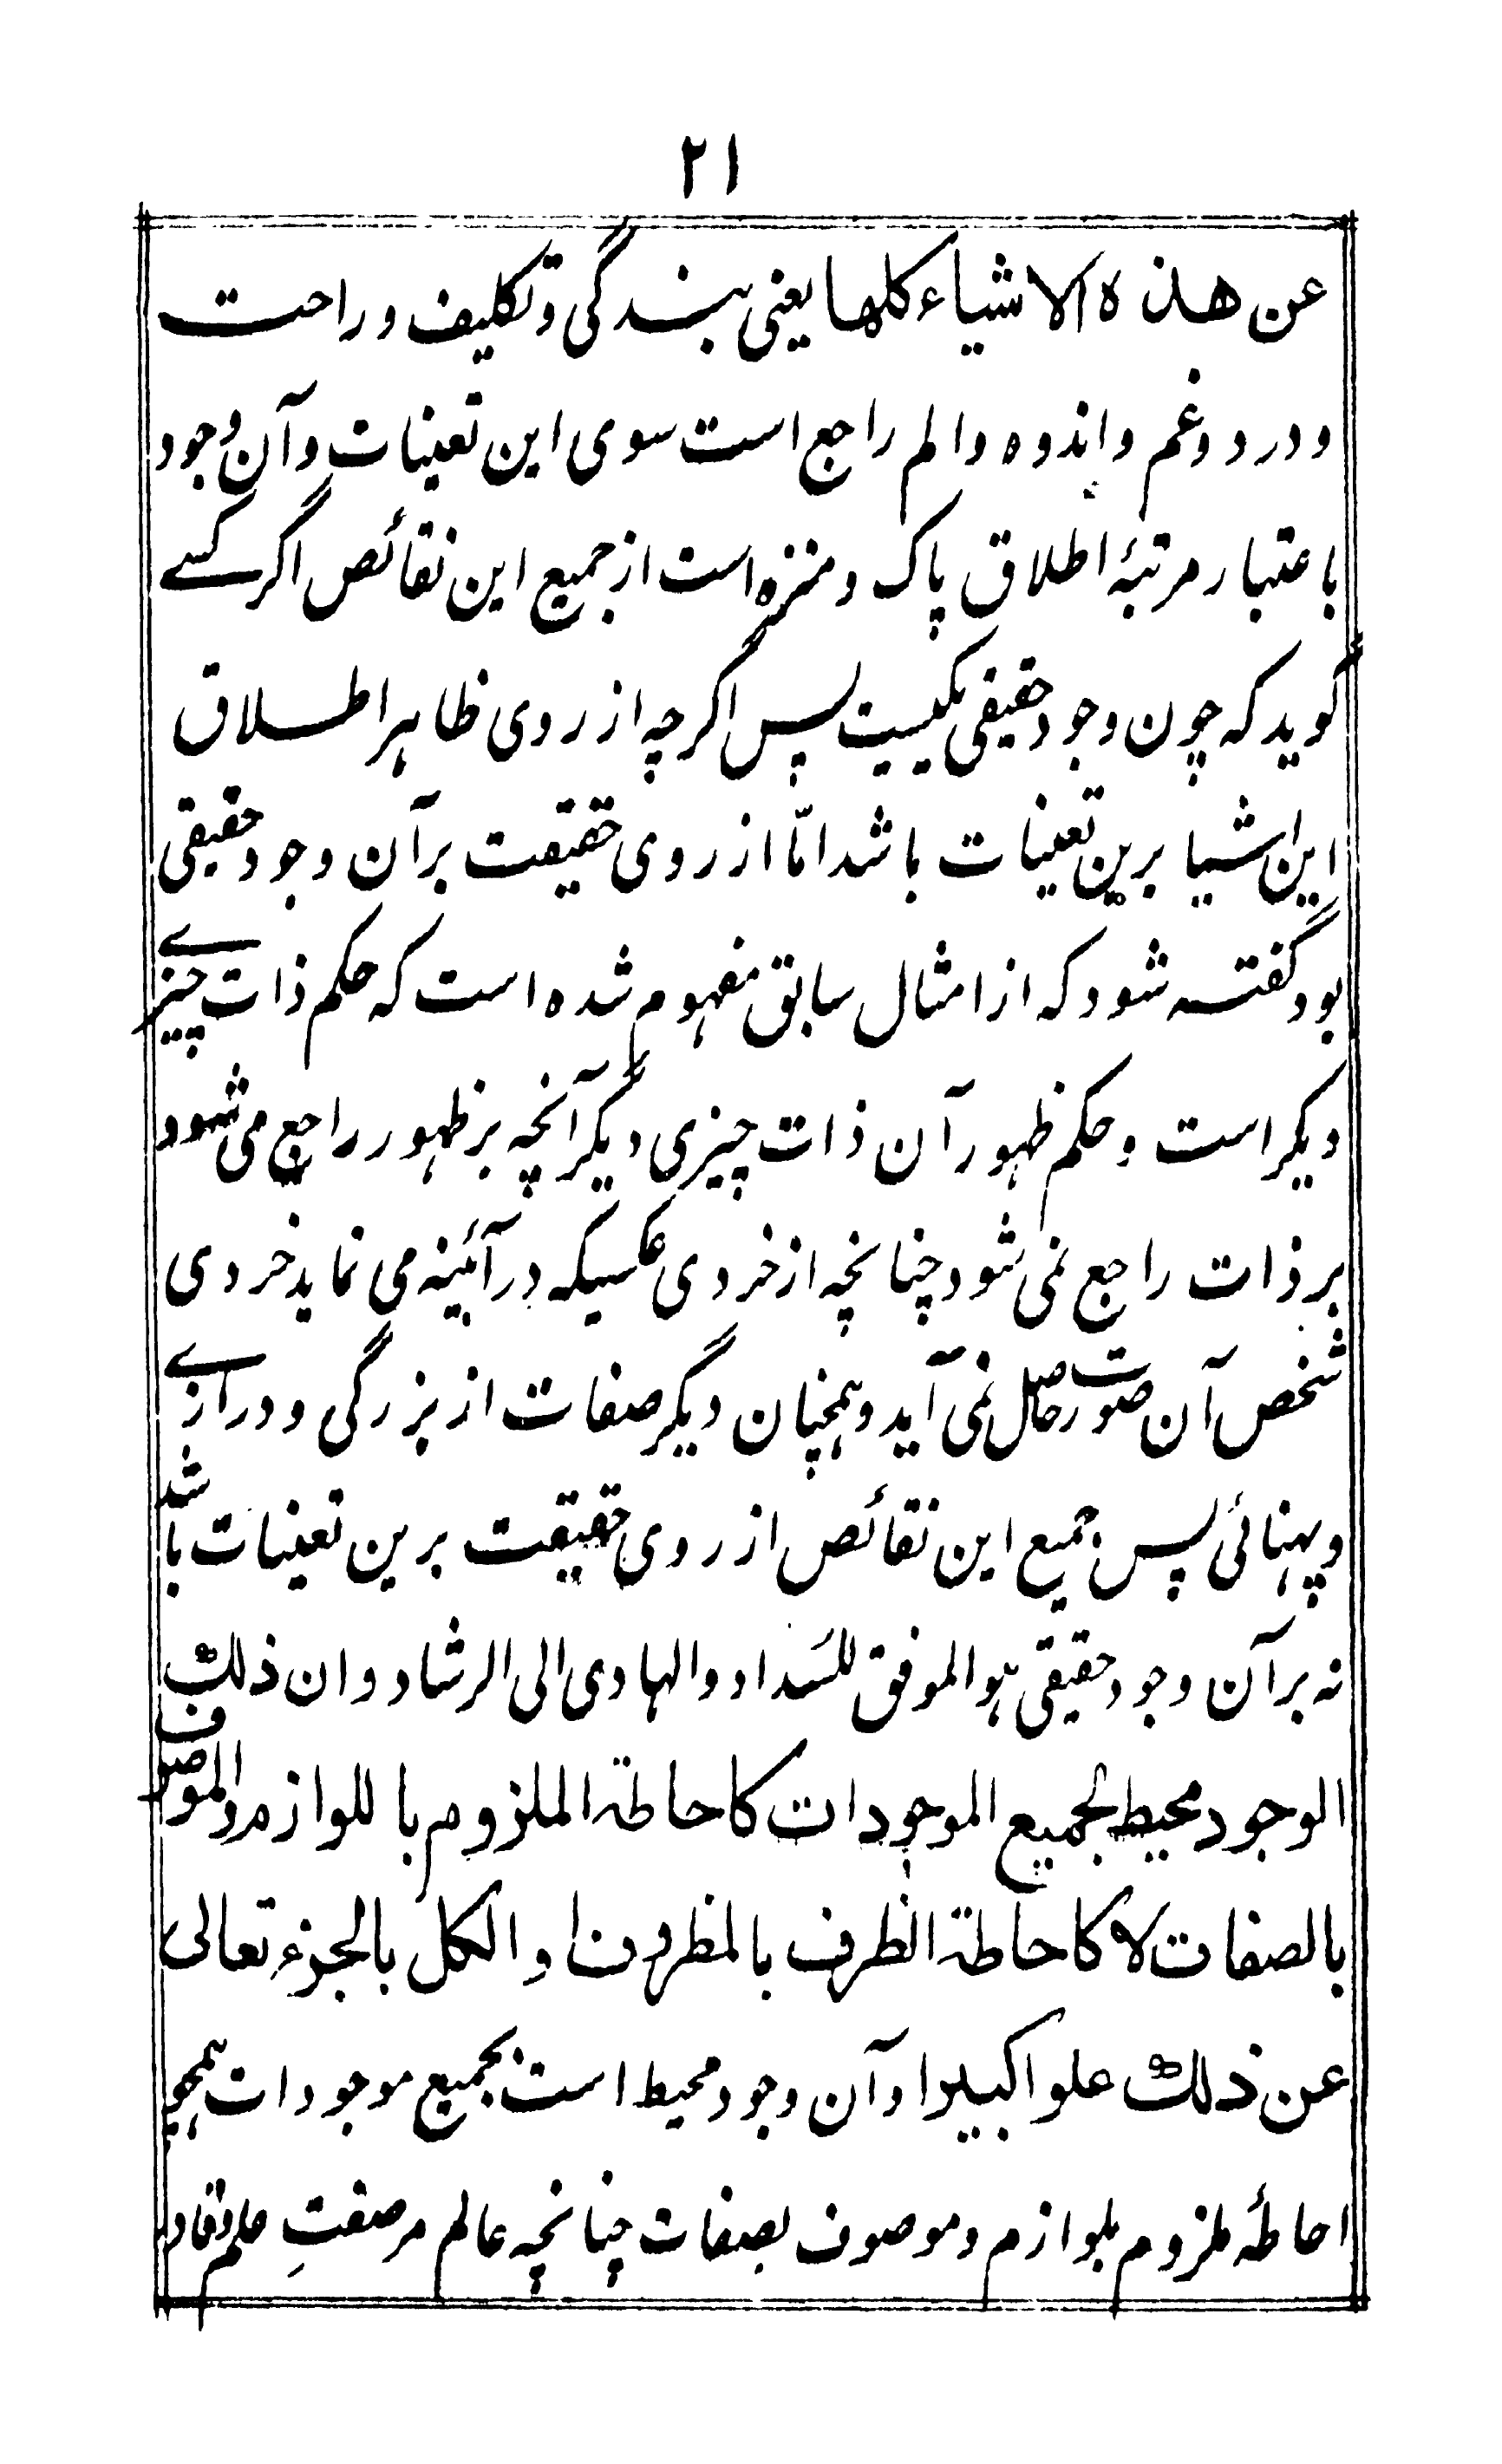 ۲۱
عن هذه الاشیاء کلها یعنی بندگی و تکلیف و راحت
و درد و غم و اندوه و الم راجع است سوی این تعینات و آن وجود
باعتبار مرتبۂ اطلاق پاک و منزه است از جمیع این نقائص اگر کسے
گوید که چون وجود حقیقی یکیست پس اگرچه از روی ظاهر اطلاق
این اشیا برین تعینات باشد امّا از روی حقیقت بر آن وجود حقیقی
بود گفته شود که از امثال سابق مفهوم شده است که حکم ذات چیزے
دیگر است و حکم ظهور آن ذات چیزی دیگر آنچه بر ظهور راجع می شود
بر ذات راجع نمی شود چنانچه از خردی عکسیکه در آئینه می نماید خردی
شخص آن صورت حاصل نمی آید و همچنان دیگر صفات از بزرگی و درازے
و پهنائی پس جمیع این نقائص از روی حقیقت برین تعینات باشد
نه بر آن وجود حقیقی هو الموفق للسَداد و الهادی الی الرشاد و ان ذلک
الوجود محیط لجمیع الموجودات کاحاطة الملزوم باللوازم و الموصوف
بالصفات لا کاحاطة الظرف بالمظروف او الکل بالجزءِ تعالی
عن ذلک علوا کبیرا و آن وجود محیط است بجمیع موجودات همچو
احاطۂ ملزوم بلوازم و موصوف بصفات چنانچه عالم مر صفتِ علم و قادر